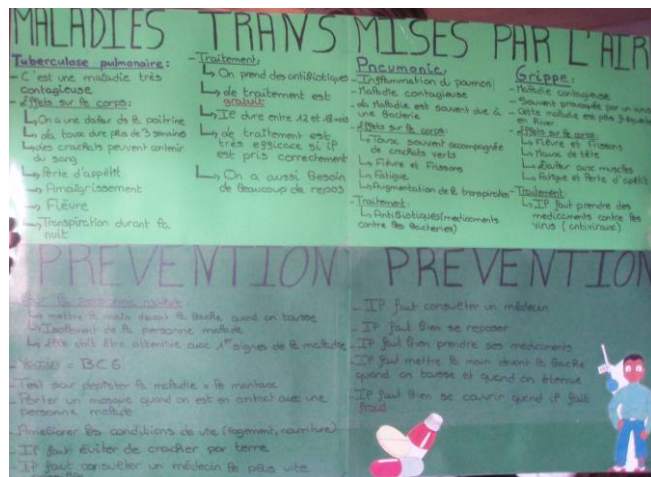 MALADIES TRANSMISES PAR L'AIR
Tuberculose pulmonaire :
- C'est une maladie très
contagieuse
- Effets sur le corps :
↳ On a une de la poitrine
↳ La toux dure plus de 3 semaines
↳ des crachats peuvent contenir
du sang
↳ Perte d'appétit
→ Amaigrissement
→ Fièvre
↳ Transpiration durant la
nuit
- Traitement :
↳ On prend des antibiotiques
↳ de traitement est
gratuit
↳ Il dure entre 12 et 18 mois
↳ de traitement est
très efficace si il
est pris correctement
↳ On a aussi besoin
de beaucoup de repos
Pneumonie :
- Inflammation du poumon
- Maladie contagieuse
- La maladie est souvent due à
une bacterie
- Effets sur le corps :
↳ Toux souvent accompagnée
de crachats verts
↳ Fièvre et frissons
↳ Fatigue
↳ Augmentation de la
- Traitement :
↳ Antibiotiques (medicaments
contre les bacteries)
Grippe :
- Maladie contagieuse
- Souvent provoquée par un virus
- Cette maladie est plus
en
- Effets sur le corps :
↳ Fièvre et frissons
↳ Maux de tête
↳ aux muscles
↳ Fatigue et Perte d'appétit
- Traitement :
↳ Il faut prendre des
medicaments contre les
virus (antiviraux)
PREVENTION
- Pour la personne malade :
↳ mettre la main devant la bouche quand on tousse
↳ Isolement de la personne malade
↳ être attentive aux 1er signes de la maladie
- Vaccin = BCG
- Test pour dépister la maladie =
- Porter un masque quand on est en contact avec une
personne malade
- Ameliorer les conditions de vie (logement, nourriture)
- Il faut éviter de cracher par terre
- Il faut consulter un médecin le plus vite
PREVENTION
- Il faut consulter un médecin
- Il faut bien se reposer
- Il faut bien prendre ses medicaments
- Il faut mettre la main devant la bouche
quand on tousse et quand on éternue
- Il faut bien se couvrir quand il fait
froid